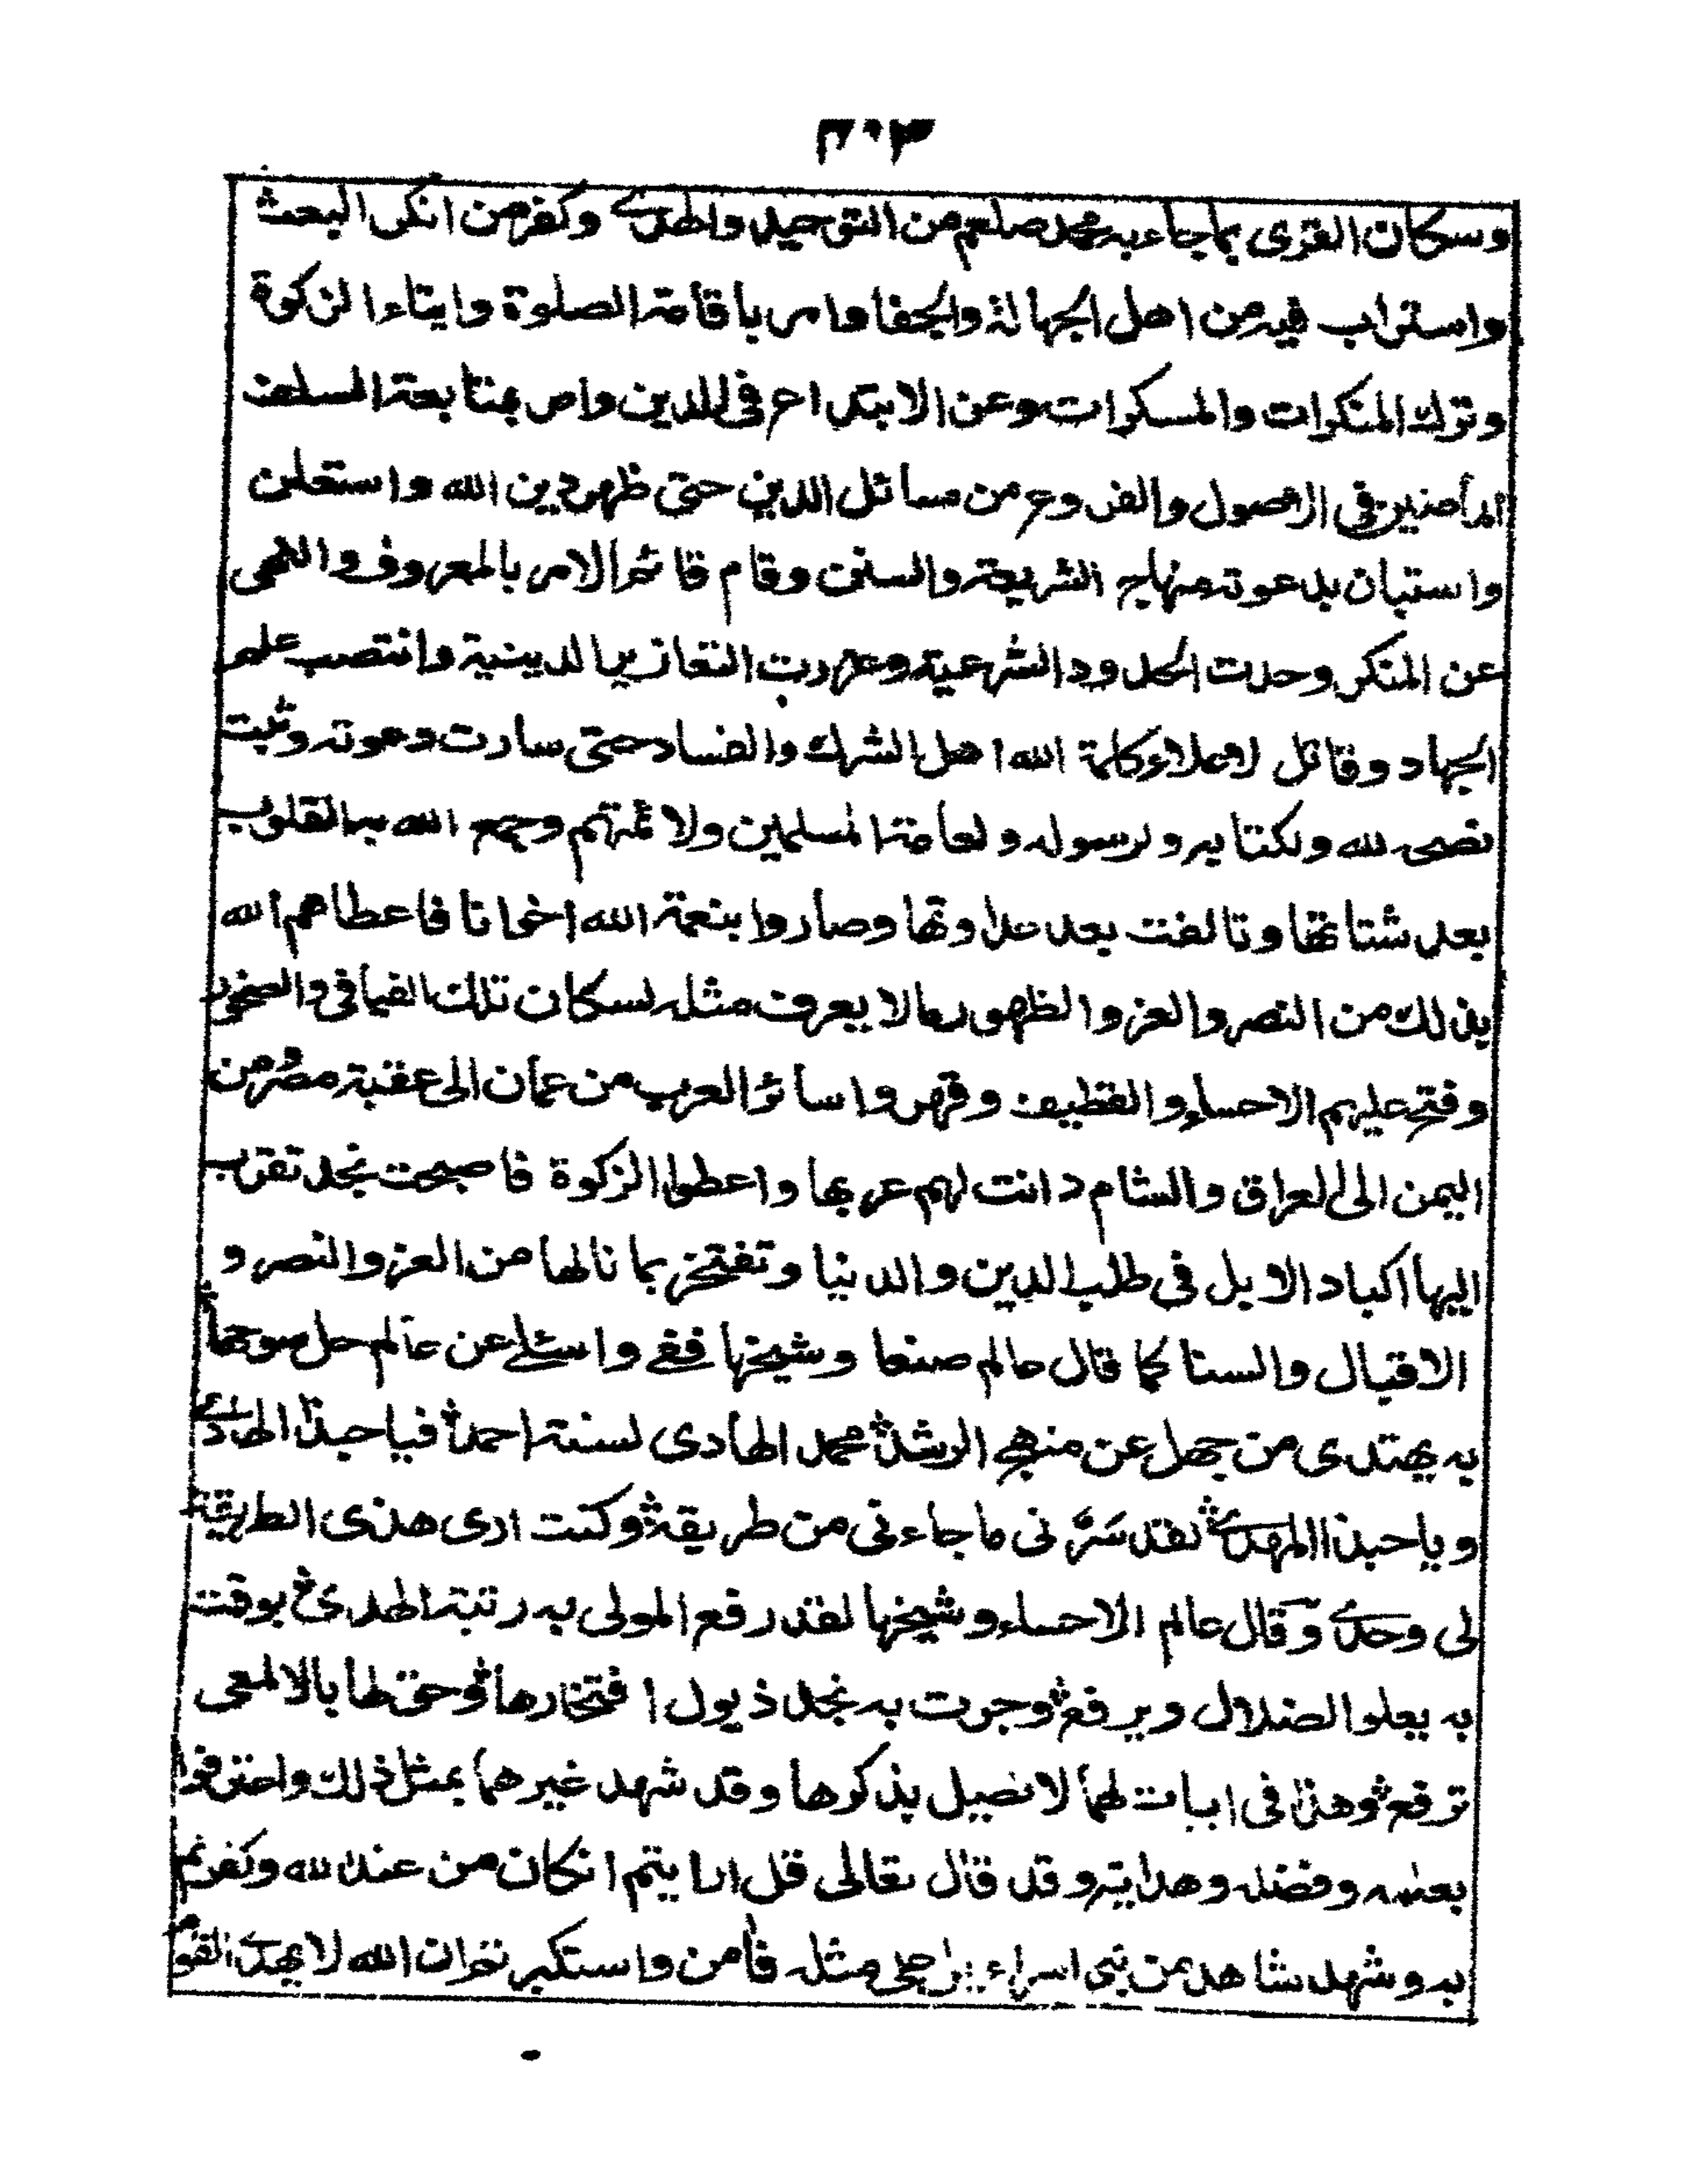 ٣٠٣
وسكان القرى بما جاء به محمد صلعم من التوحيد والهدى وكفر من انكر البعث
واستراب فيه من اهل الجهالة والجفا وامر باقامة الصلوة وايتاء الزكوة
وترك المنكرات والمسكرات وعن الابتداع فى الدين وامر بمتابعة السلف
الماضين فى الاصول والفروع من مسائل الدين حتى ظهر دين الله واستعلن
واستبان بدعوته منهاج الشريعة والسنن وقام قائم الامر بالمعروف والنهى
عن المنكر وحدت الحدود الشرعية وعزرت التعازير الدينية وانتصب علم
الجهاد وقاتل لاعلاء كلمة الله اهل الشرك والفساد حتى سارت دعوته وثبت
نصحه لله ولكتابه ولرسوله ولعامة المسلمين ولائمتهم وجمع الله به القلوب
بعد شتاتها وتالفت بعد عداوتها وصاروا بنعمة الله اخوانا فاعطاهم الله
بذلك من النصر والعز والظهور مالا يعرف مثله لسكان تلك الفيافى والصخور
وفتح عليهم الاحساء والقطيف وقهروا سائر العرب من عمان الى عقبة مصر ومن
اليمن الى العراق والشام دانت لهم عربها واعطوا الزكوة فاصبحت نجد تضرب
اليها اكباد الابل فى طلب الدين والدنيا وتفتخر بما نالها من العز والنصر و
الاقبال والسنا كما قال عالم صنعا وشيخها قفى واسئلى عن عالم حل سوحها
به يهتدى من جهل عن منهج الرشد محمد الهادى لسنة احمد فيا حبذا الهادى
ويا حبذا المهدى لقد سَرَّنى ما جاءنى من طريقة وكنت ارى هذى الطريقة
لى وحدى وقال عالم الاحساء وشيخها لقد رفع المولى به رتبة الهدى بوقت
به يعلو الضلال ويرفع وجرت به نجد ذيول افتخارها وحق لها بالالمعى
ترفع وهذا فى ابيات لهما لا نطيل بذكرها وقد شهد غيرهما بمثل ذلك واعترفوا
بعلمه وفضله وهدايته وقد قال تعالى قل ارايتم ان كان من عند الله وكفرتم
به وشهد شاهد من بنى اسراءيل على مثله فامن واستكبرتم ان الله لا يهدى القوم